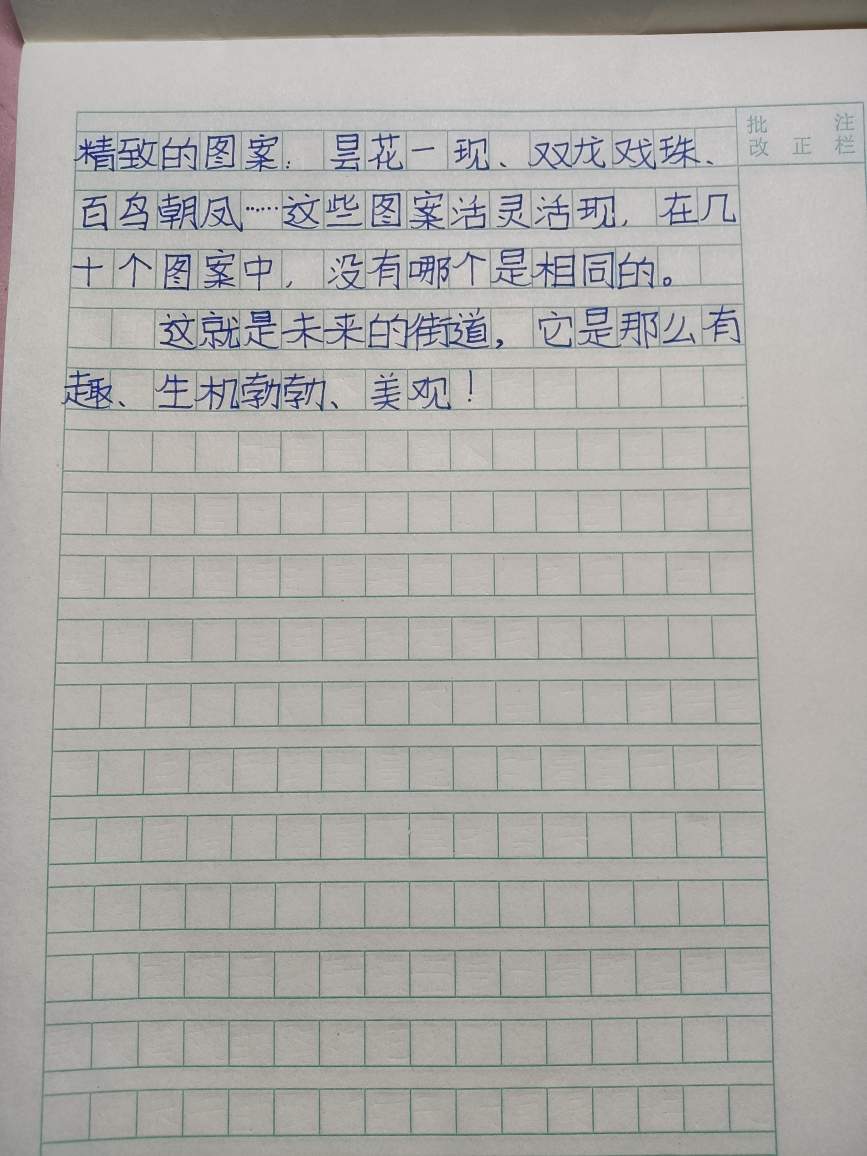 批 注
改 正 栏
精致的图案：昙花一现、双龙戏珠、
百鸟朝凤……这些图案活灵活现，在几
十个图案中，没有哪个是相同的。
这就是未来的街道，它是那么有
趣、生机勃勃、美观！